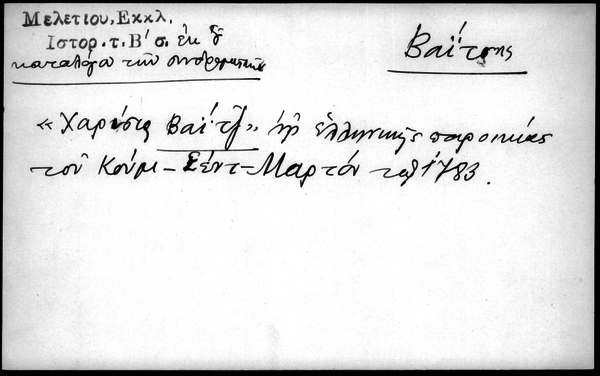 Μελετίου, Εκκλ.
Ιστορ. τ. Β' σ. ἐκ τοῦ
καταλόγου τῶν συνδρομητῶν
Βαΐτσης
«Χαρίσις Βαΐτζ» ἐκ ἑλληνικῆς παροικίας
τοῦ Κούμ-Σέντ-Μαρτόν τοῦ 1783.